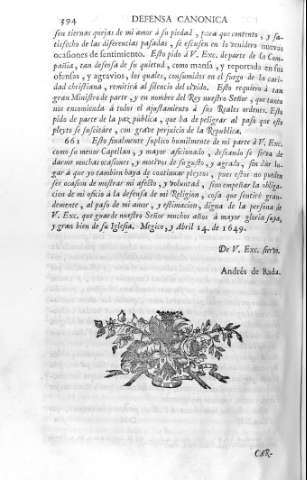 394 DEFENSA CANONICA
sus tiernas quejas de mi amor à su piedad, para que contento, y sa-
tisfecho de las diferencias pasadas, se escusen en lo venidero nuevos
ocasiones de sentimiento. Esto pido à V. Exc. de parte de la Com-
pañia, tan defensa de su quietud, como mansa, y reportada en sus
ofensas, y agravios, los quales, consumidos en el fuego de la cari-
dad christiana, remitirà al silencio del olvido. Esto requiero à tan
gran Ministro de parte, y en nombre del Rey nuestro Señor, que tanto
nos encomienda à todos el ajustamiento à sus Reales ordenes. Esto
pido de parte de la paz publica, que ha de peligrar al paso que este
pleyto se suscitàre, con grave perjuicio de la Republica.
661 Esto finalmente suplico humilmente de mi parte à V. Exc.
como su menor Capellan, y mayor aficionado, deseando se sirva de
darme muchas ocasiones, y motivos de su gusto, y agrado, sin dar lu-
gar à que yo tambien haya de continuar pleytos, pues estos no pueden
ser ocasion de mostrar mi afecto, y voluntad, sino empeñar la obliga-
cion de mi oficio à la defensa de mi Religion, cosa que sentirè gran-
demente, al paso de mi amor, y estimacion, digna de la persona de
V. Exc. que guarde nuestro Señor muchos años à mayor gloria suya,
y gran bien de su Iglesia. Megico, y Abril 24. de 1649.
De V. Exc. siervo.
Andrés de Rada.
CAR-